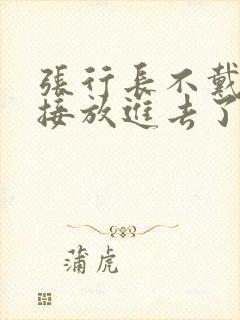 張行長不戴
接放進去了
蒲虎